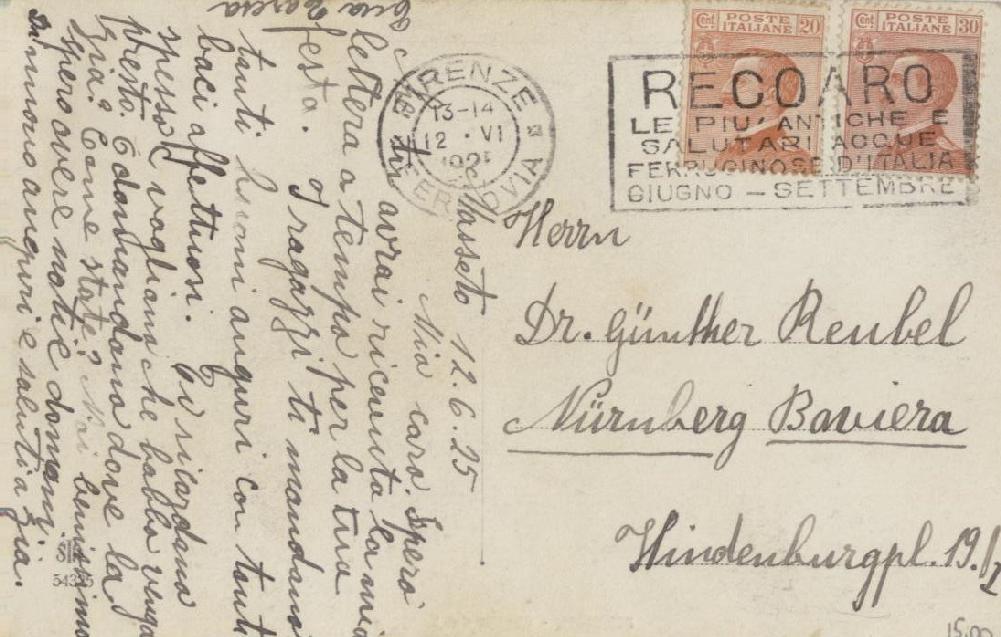 Masseto 12.6.25
Mio caro. Spero
tu avrai ricevuto la mia
lettera a tempo per la tua
festa. I ragazzi ti mandano
tanti buoni auguri con tanti
baci affettuosi. Ti ricordano
spesso e vogliono che babbo venga
presto. E domandano dove la
zia? Come state? Noi benissimo
spero avere notie domani
Di nuovo auguri e saluti a zia.
tua
FIRENZE
13-14
12 · VI
FERROVIA
POSTE ITALIANE
Cent 20
POSTE ITALIANE
Cent 30
RECOARO
LE PIU' ANTICHE E
SALUTARI ACQUE
FERRUGINOSE D'ITALIA
GIUGNO — SETTEMBRE
Herrn
Dr. Günther Reubel
Nürnberg Baviera
Hindenburgpl. 19.
54325
15,00